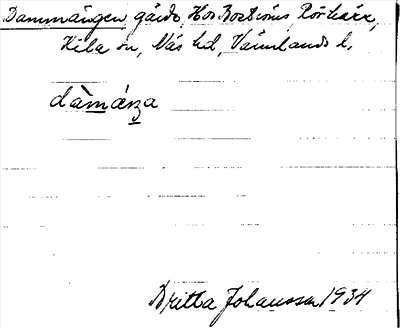 Dammängen, gärde, Hos Boström, Rörkärr,
Kila sn, Näs hd, Värmlands l.
dàmáŋa
Britta Johansson 1934